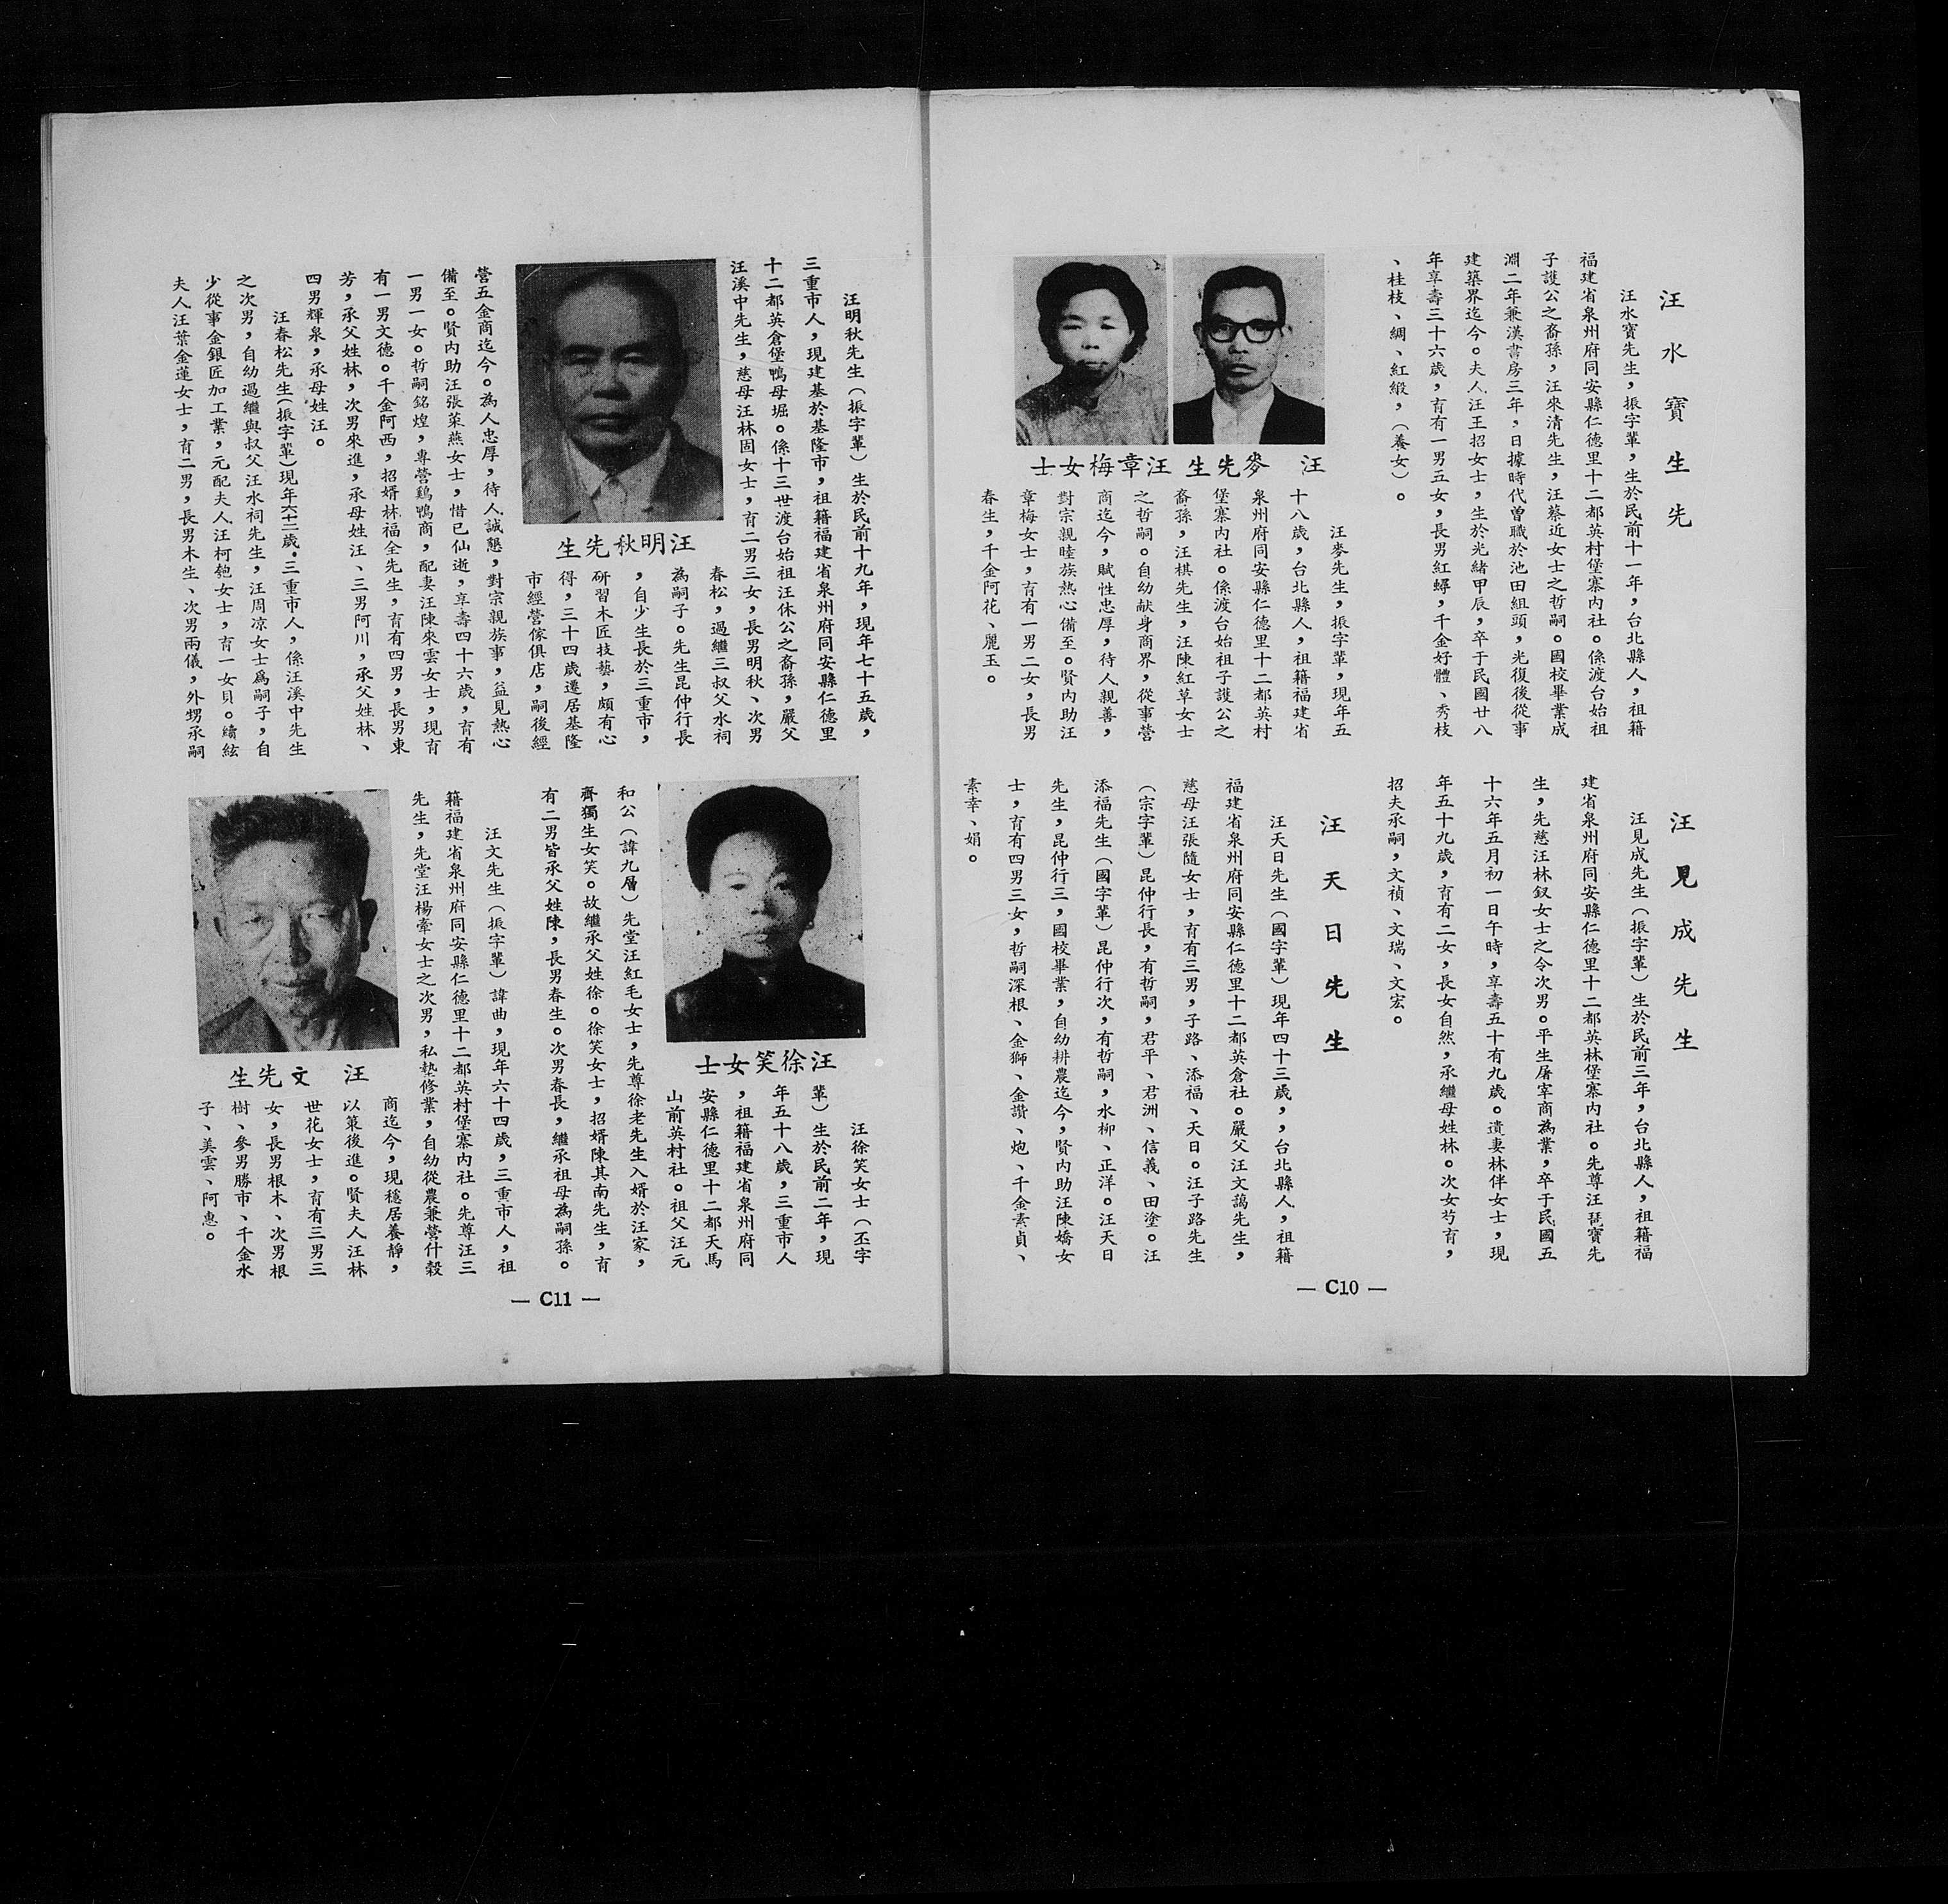 汪水寶生先
汪水寶先生，振字輩，生於民前十一年，台北縣人，祖籍
福建省泉州府同安縣仁德里十二都英村堡寨內社。係渡台始祖
子護公之裔孫，汪來清先生，汪蔡近女士之哲嗣。國校畢業成
淵二年兼漢書房三年，日據時代曾職於池田組頭，光復後從事
建築界迄今。夫人汪王招女士，生於光緒甲辰，卒于民國廿八
年享壽三十六歲，育有一男五女，長男紅蟳，千金好體、秀枝
、桂枝、綢、紅緞，（養女）。
汪麥先生 汪章梅女士
汪麥先生，振字輩，現年五
十八歲，台北縣人，祖籍福建省
泉州府同安縣仁德里十二都英村
堡寨內社。係渡台始祖子護公之
裔孫，汪棋先生，汪陳紅草女士
之哲嗣。自幼献身商界，從事營
商迄今，賦性忠厚，待人親善，
對宗親睦族熱心備至。賢內助汪
章梅女士，育有一男二女，長男
春生，千金阿花、麗玉。
汪見成先生
汪見成先生（振字輩）生於民前三年，台北縣人，祖籍福
建省泉州府同安縣仁德里十二都英林堡寨內社。先尊汪琵寶先
生，先慈汪林釵女士之令次男。平生屠宰商為業，卒于民國五
十六年五月初一日午時，享壽五十有九歲。遺妻林伴女士，現
年五十九歲，育有二女，長女自然，承繼母姓林。次女芍育，
招夫承嗣，文禎、文瑞、文宏。
汪天日先生
汪天日先生（國字輩）現年四十三歲，，台北縣人，祖籍
福建省泉州府同安縣仁德里十二都英倉社。嚴父汪文藹先生，
慈母汪張隨女士，育有三男，子路、添福、天日。汪子路先生
（宗字輩）昆仲行長，有哲嗣，君平、君洲、信義、田塗。汪
添福先生（國字輩）昆仲行次，有哲嗣，水柳、正洋。汪天日
先生，昆仲行三，國校畢業，自幼耕農迄今，賢內助汪陳嬌女
士，育有四男三女，哲嗣深根、金獅、金讚、炮、千金素貞、
素幸、娟。
— C10 —
汪明秋先生（振字輩）生於民前十九年，現年七十五歲，
三重市人，現建基於基隆市，祖籍福建省泉州府同安縣仁德里
十二都英倉堡鴨母堀。係十三世渡台始祖汪休公之裔孫，嚴父
汪溪中先生，慈母汪林固女士，育二男三女，長男明秋、次男
春松，過繼三叔父水祠
為嗣子。先生昆仲行長
，自少生長於三重市，
研習木匠技藝，頗有心
得，三十四歲遷居基隆
市經營傢俱店，嗣後經
汪明秋先生
營五金商迄今。為人忠厚，待人誠懇，對宗親族事，益見熱心
備至。賢內助汪張菜燕女士，惜已仙逝，享壽四十六歲，育有
一男一女。哲嗣銘煌，專營鷄鴨商，配妻汪陳來雲女士，現育
有一男文德。千金阿西，招婿林福全先生，育有四男，長男東
芳，承父姓林，次男來進，承母姓汪、三男阿川，承父姓林、
四男輝泉，承母姓汪。
汪春松先生（振字輩）現年六十二歲．三重市人，係汪溪中先生
之次男，自幼過繼與叔父汪水祠先生，汪周凉女士爲嗣子，自
少從事金銀匠加工業，元配夫人汪柯匏女士，育一女貝。續絃
夫人汪葉金蓮女士，育二男，長男木生、次男兩儀，外甥承嗣
汪徐笑女士
汪徐笑女士（丕字
輩）生於民前二年，現
年五十八歲，三重市人
，祖籍福建省泉州府同
安縣仁德里十二都天馬
山前英村社。祖父汪元
和公（諱九層）先堂汪紅毛女士，先尊徐老先生入婿於汪家，
齊獨生女笑。故繼承父姓徐。徐笑女士，招婿陳其南先生，育
有二男皆承父姓陳，長男春生。次男春長，繼承祖母為嗣孫。
汪文先生（振字輩）諱曲，現年六十四歲，三重市人，祖
籍福建省泉州府同安縣仁德里十二都英村堡寨內社。先尊汪三
先生，先堂汪楊牽女士之次男，私塾修業，自幼從農兼營什穀
商迄今，現穩居養靜，
以策後進。賢夫人汪林
世花女士，育有三男三
女，長男根木、次男根
樹、參男勝市、千金水
子、美雲、阿惠。
汪文先生
— C11 —